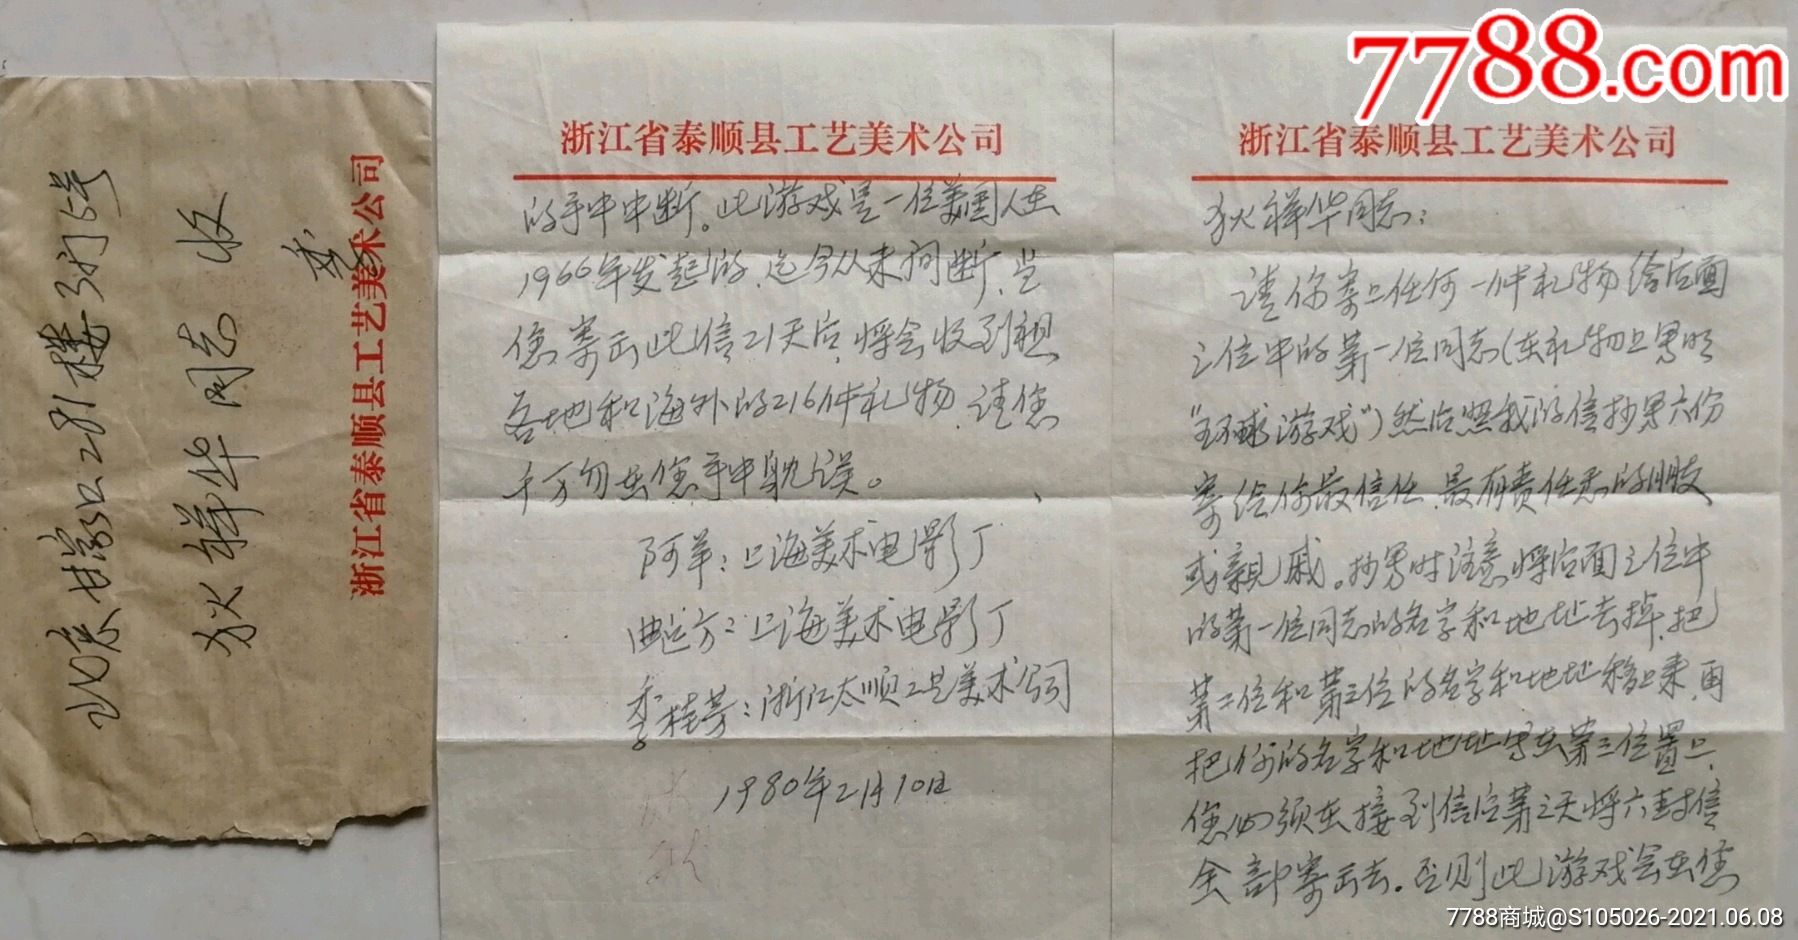 7788.com
北京甘家口281楼3门5号
狄祥华同志 收
浙江省泰顺县工艺美术公司
浙江省泰顺县工艺美术公司
狄祥华同志：
请你寄上任何一件礼物给后面
三位中的第一位同志（在礼物上写明
“环球游戏”）然后照我的信抄写六份
寄给你最信任、最有责任感的朋友
或亲戚。抄写时注意将后面三位中
的第一位同志的名字和地址去掉，把
第二位和第三位的名字和地址移上来，再
把你的名字和地址写在第三位置上，
您必须在接到信后第三天将六封信
全部寄出去。否则此游戏会在您
浙江省泰顺县工艺美术公司
的手中中断。此游戏是一位美国人在
1966年发起的，迄今从未间断，当
您寄出此信21天后，将会收到祖
各地和海外的216件礼物，请您
千万勿在您手中耽误。
阿羊：上海美术电影厂
曲建方：上海美术电影厂
季桂芳：浙江太顺工艺美术公司
1980年2月10日
7788商城@S105026-2021.06.08